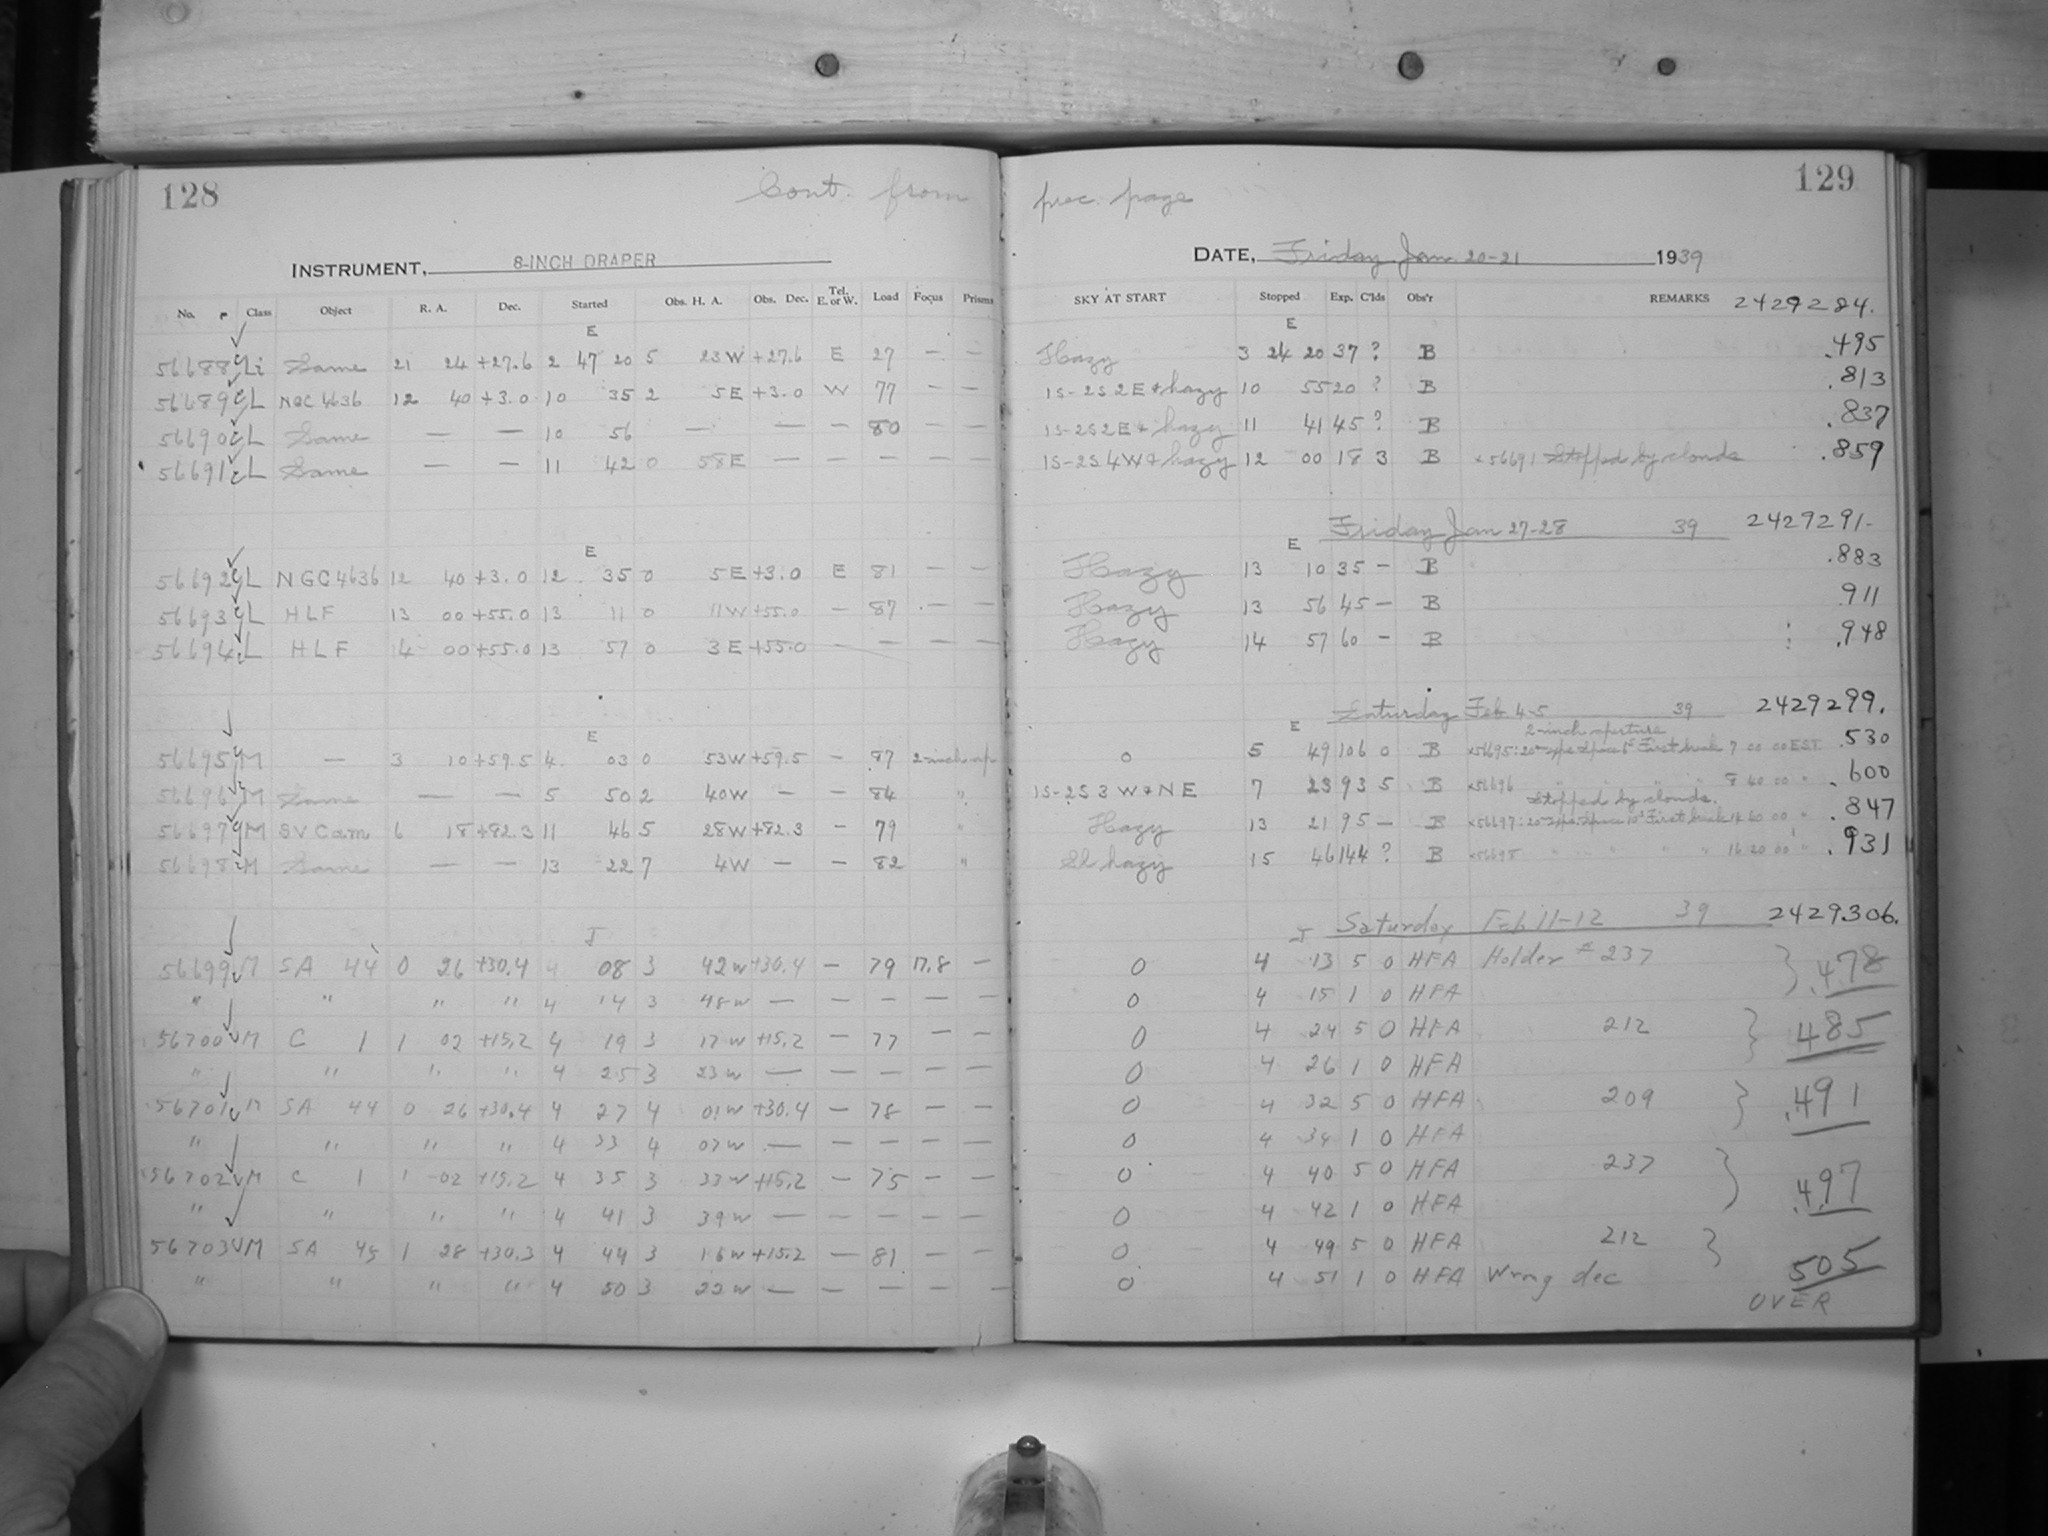 128 Cont. from prec. page 129
INSTRUMENT, 8-INCH DRAPER DATE, Friday Jan. 20-21 1939
No. Class Object R. A. Dec. Started Obs. H. A. Obs. Dec. Tel. E. or W. Load Focus Prisms SKY AT START Stopped Exp. C'lds Obs'r REMARKS 2429284.
E E
56688 Li Same 21 24 +27.6 2 47 20 5 23W +27.6 E 27 — — Hazy 3 24 20 37 ? B .495
56689 L NGC 4636 12 40 +3.0 10 35 2 5E +3.0 W 77 — — 1S-2S 2E & hazy 10 55 20 ? B .813
56690 L Same — — 10 56 — — — 80 — — 1S-2S 2E & hazy 11 41 45 ? B .837
56691 L Same — — 11 42 0 58E — — — — — 1S-2S 4W & hazy 12 00 18 3 B x56691 Stopped by clouds .859
Friday Jan 27-28 39 2429291.
E E
56692 L NGC 4636 12 40 +3.0 12 35 0 5E +3.0 E 81 — — Hazy 13 10 35 — B .883
56693 L HLF 13 00 +55.0 13 11 0 11W +55.0 — 87 — — Hazy 13 56 45 — B .911
56694 L HLF 14 00 +55.0 13 57 0 3E +55.0 — — — — Hazy 14 57 60 — B .948
Saturday Feb 4-5 39 2429299.
E E 2-inch aperture
56695 M — 3 10 +59.5 4 03 0 53W +59.5 — 87 2-inch ap 0 5 49 106 0 B x56695: First 7 00 00 EST. .530
56696 M Same — — 5 50 2 40W — — 84 " 1S-2S 3 W & NE 7 23 93 5 B x56696 " " " " 8 60 00 " .600
Stopped by clouds.
56697 M SV Cam 6 18 +82.3 11 46 5 28W +82.3 — 79 " Hazy 13 21 95 — B x56697: First .847
56698 M Same — — 13 22 7 4W — — 82 " Sl hazy 15 46 144 ? B x56698 " " " " 16 20 00 " .931
Saturday Feb 11-12 39 2429306.
J J
56699 M SA 44 0 26 +30.4 4 08 3 42W +30.4 — 79 17.8 — 0 4 13 5 0 HFA Holder # 237 } .478
" " " " 4 14 3 48W — — — — — 0 4 15 1 0 HFA
56700 M C 1 1 02 +15.2 4 19 3 17W +15.2 — 77 — — 0 4 24 5 0 HFA 212 } 485
" " " " 4 25 3 23W — — — — — 0 4 26 1 0 HFA
56701 M SA 44 0 26 +30.4 4 27 4 01W +30.4 — 78 — — 0 4 32 5 0 HFA 209 } .491
" " " " 4 33 4 07W — — — — — 0 4 34 1 0 HFA
56702 M C 1 1 02 +15.2 4 35 3 33W +15.2 — 75 — — 0 4 40 5 0 HFA 237 } .497
" " " " 4 41 3 39W — — — — — 0 4 42 1 0 HFA
56703 M SA 45 1 28 +30.3 4 44 3 16W +15.2 — 81 — — 0 4 49 5 0 HFA 212 } 505
" " " " 4 50 3 22W — — — — — 0 4 51 1 0 HFA Wrong dec
OVER